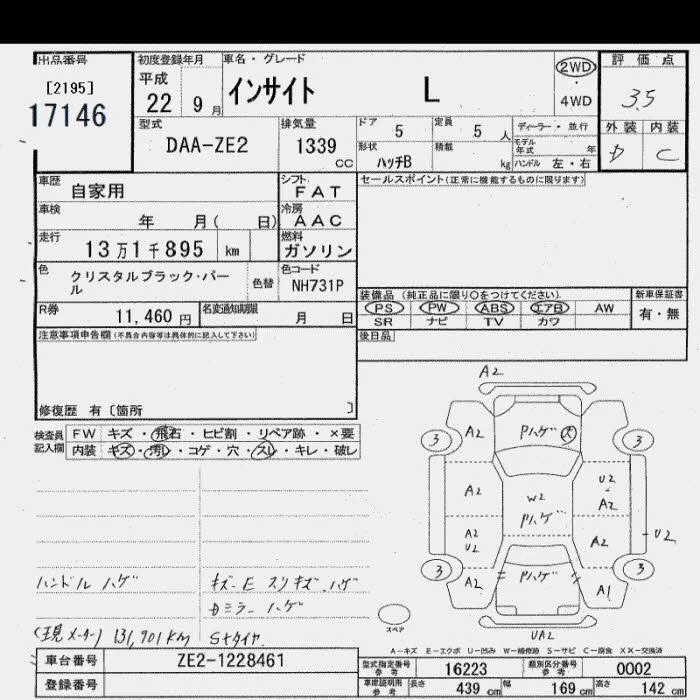 出品番号
[2195]
17146
初度登録年月
平成
22 9 月
車名・グレード
インサイト L
2WD
・
4WD
評価点
3.5
外装 内装
D C
型式
DAA-ZE2
排気量
1339
CC
ドア 5
定員 5 人
ディーラー・並行
形状 ハッチB
積載 kg
モデル年式 年
ハンドル 左・右
車歴 自家用
シフト FAT
セールスポイント(正常に機能するものに限ります)
車検 年 月( 日)
冷房 AAC
走行 13万1千895 km
燃料 ガソリン
色 クリスタルブラック・パール
色替
色コード NH731P
装備品 (純正品に限り○をつけてください)
新車保証書
PS PW ABS エアB AW
SR ナビ TV カワ
有・無
R券 11,460 円
名変通知期限 月 日
後日品
注意事項申告欄(不具合内容等は具体的に記入して下さい)
修復歴 有 〔箇所 〕
検査員記入欄
FW キズ・飛石・ヒビ割・リペア跡・×要
内装 キズ・汚レ・コゲ・穴・スレ・キレ・破レ
A2
3 A2 Pハゲ 大 3
A2 W2 Pハゲ U2 - A2
A2 U2 A2 U2
3 A2 Pハゲ A1 3
スペア
UA2
ハンドル ハゲ
キズ・E スリキズ、ハゲ
Dミラー ハゲ
(現メーター) 131,901km Sタイヤ
A-キズ E-エクボ U-凹み W-補修跡 S-サビ C-腐食 XX-交換済
車台番号 ZE2-1228461
登録番号
型式指定番号 参考 16223
類別区分番号 参考 0002
車庫証明用 参考 長さ 439 cm 幅 169 cm 高さ 142 cm